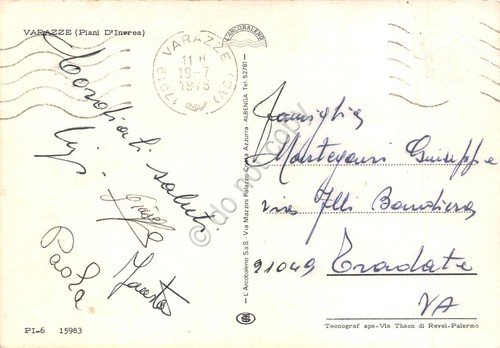 VARAZZE (Piani D'Invrea)
17019 VARAZZE (SV)
11 H
19-7
1976
L'ARCOBALENO
Cordiali saluti
Luigi
Fausto
Paola
Famiglia
Giuseppe
via F.lli Bandiera
21049 Tradate
VA
L'Arcobaleno S.a.S. Via Mazzini Palazzo Costa Azzurra - ALBENGA Tel. 52781
do not copy
PI-6 15983
Tecnograf spa - Via Thaon di Revel - Palermo